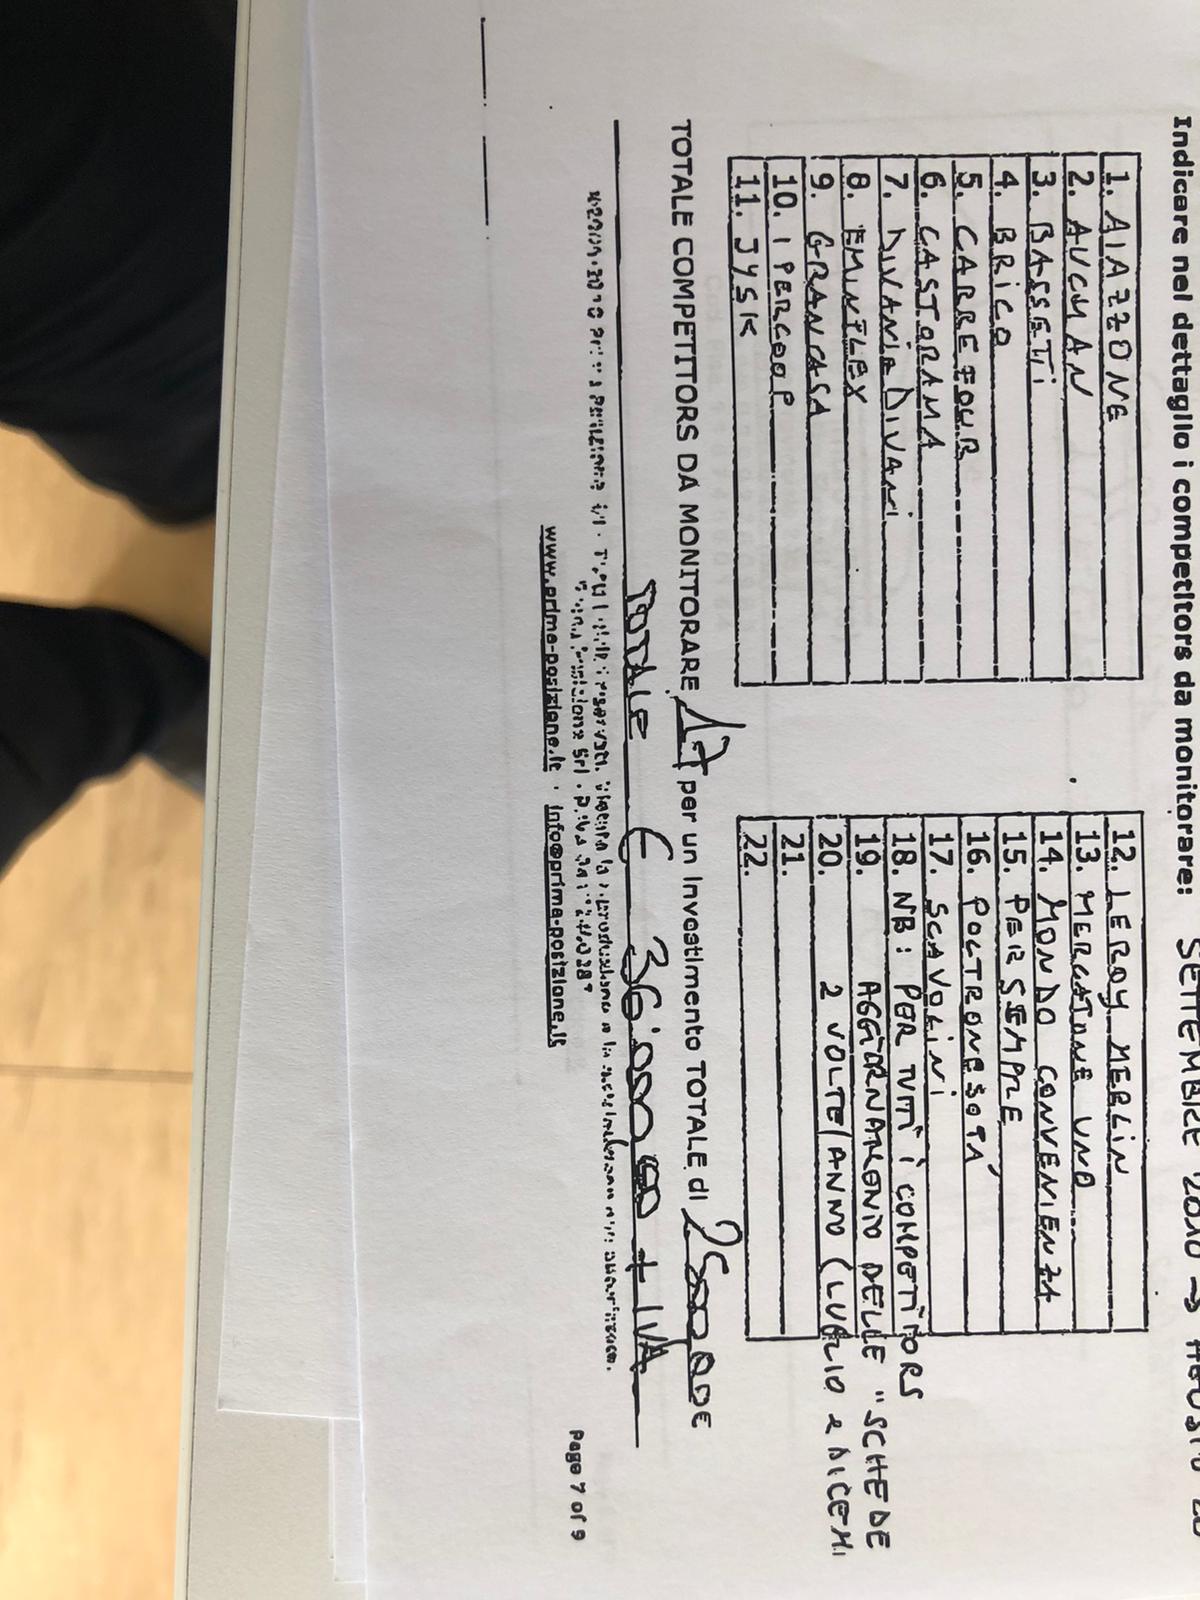 Indicare nel dettaglio i competitors da monitorare: SETTEMBRE 2010 → AGOSTO 20
1. AIAZZONE
2. AUCHAN
3. BASSETI
4. BRICO
5. CARREFOUR
6. CASTORAMA
7. DIVANI&DIVANI
8. EMINFLEX
9. GRANCASA
10. IPERCOOP
11. JYSK
12. LEROY MERLIN
13. MERCATONE UNO
14. MONDO CONVENIENZA
15. PER SEMPRE
16. POLTRONESOFÀ
17. SCAVOLINI
18. NB: PER TUTTI i COMPETITORS
19. AGGIORNAMENTO DELLE "SCHEDE
20. 2 VOLTE/ANNO (LUGLIO e DICEM
21.
22.
TOTALE COMPETITORS DA MONITORARE 17 per un Investimento TOTALE di
TOTALE € 36.000 00 + IVA
www.prima-posizione.it · info@prima-posizione.it
Page 7 of 9